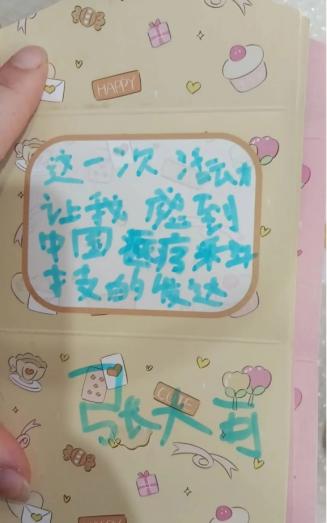 HAPPY
这一次活动
让我感到
中国医疗科
技的发达
张大可